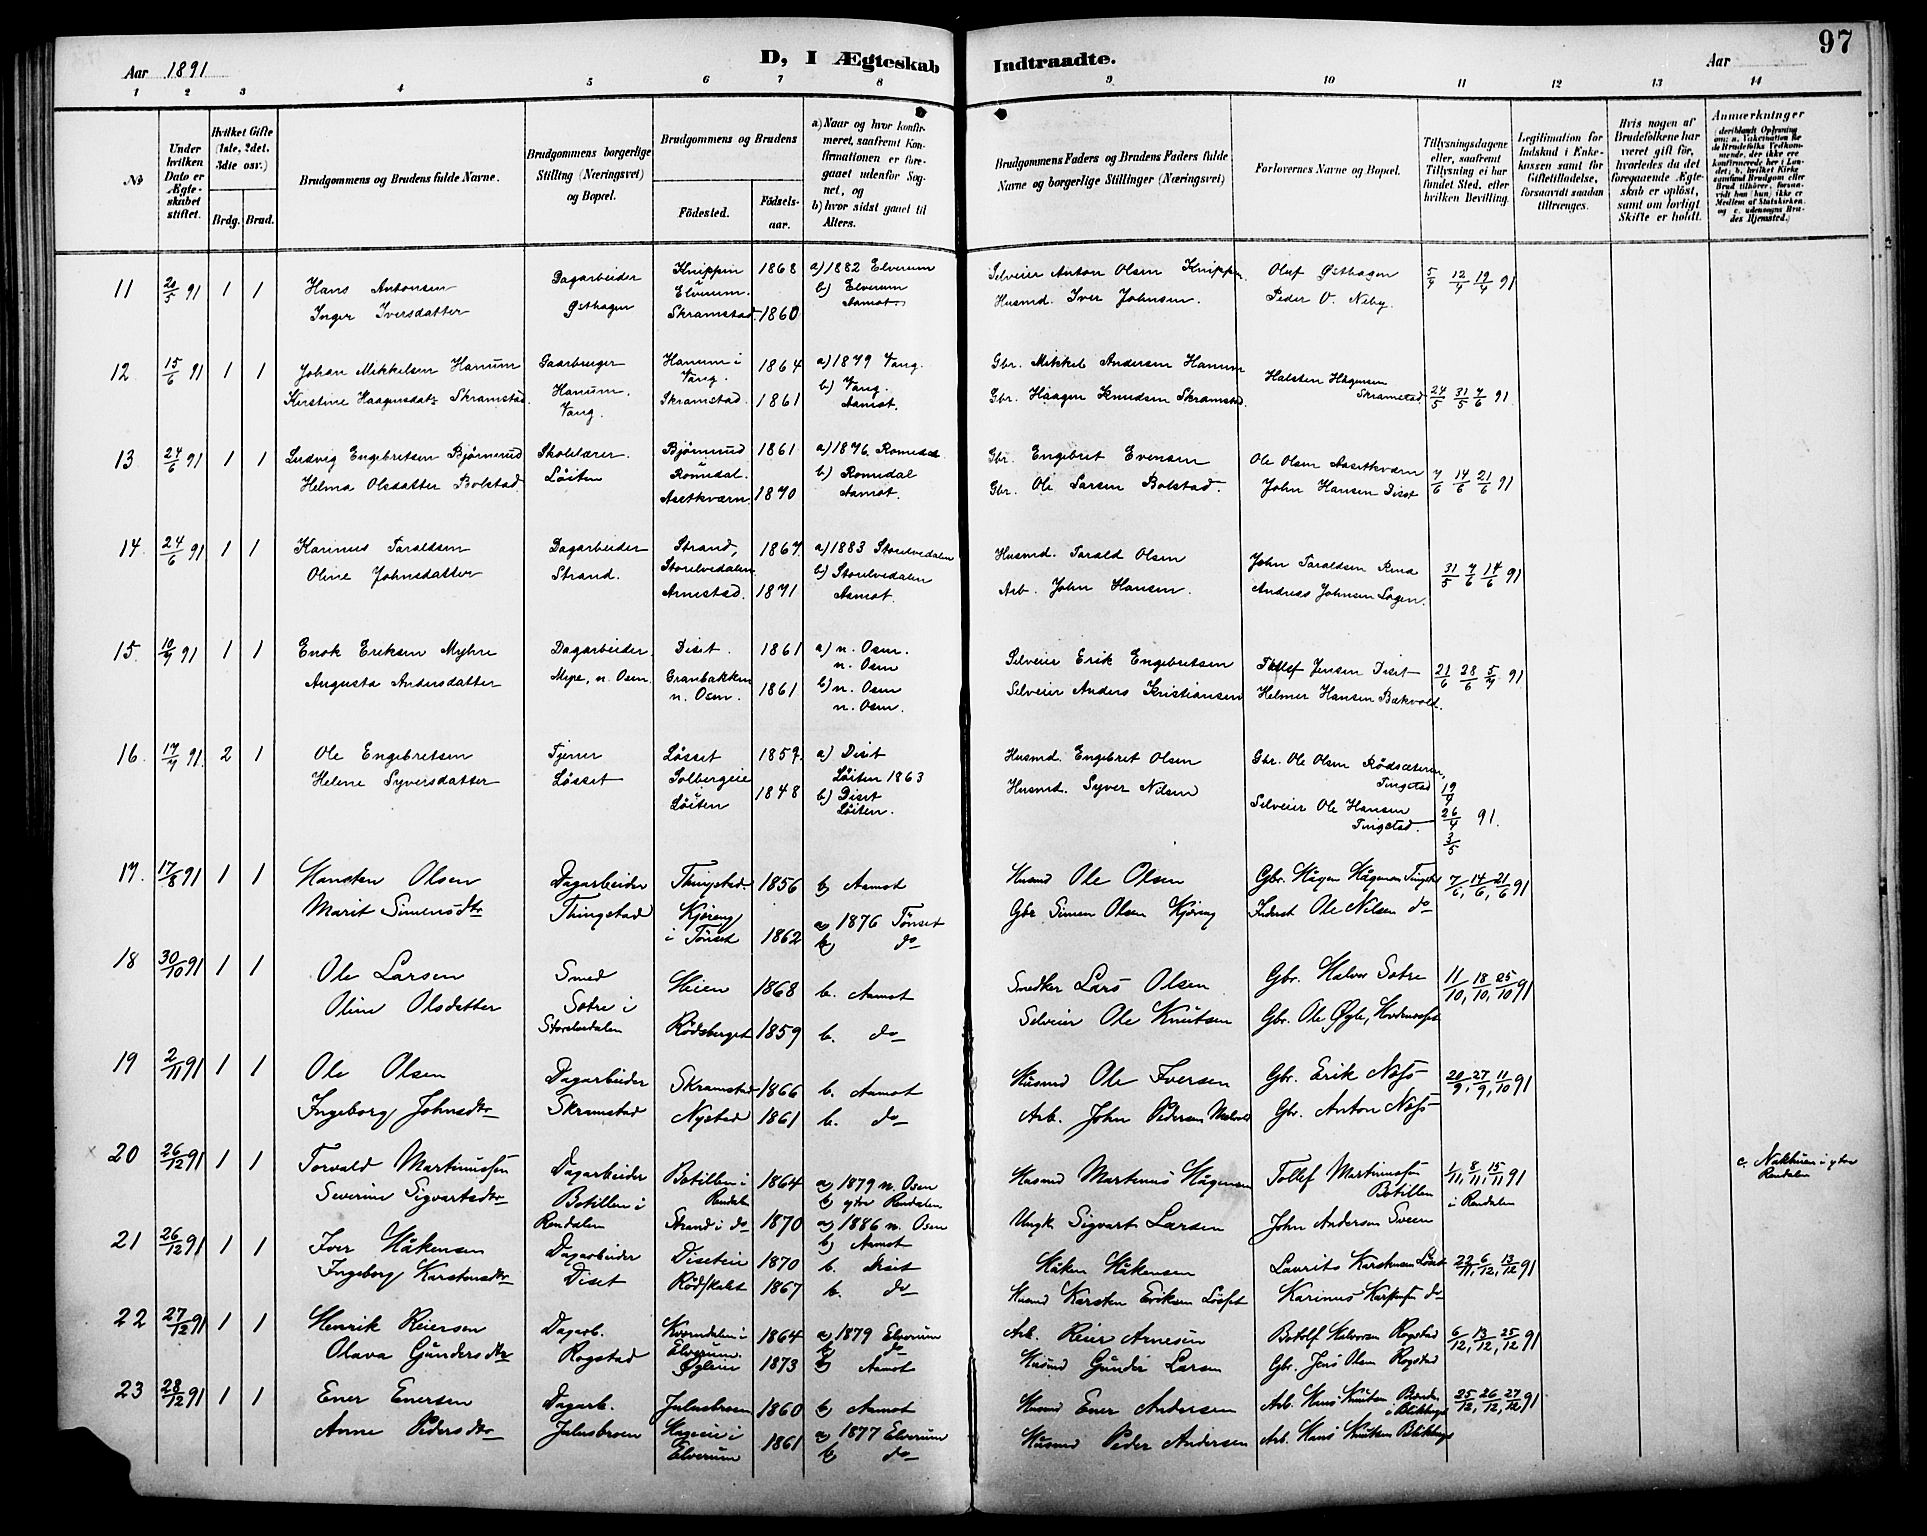 97
Aar 1891
D, I Ægteskab Indtraadte.
Aar
1 2 3 4 5 6 7 8 9. 10 11 12 13 14
№
Under hvilken Dato er Ægteskabet stiftet.
Hvilket Gifte (1ste, 2det, 3die osv.)
Brdg. Brud.
Brudgommens og Brudens fulde Navne.
Brudgommens borgerlige Stilling (Næringsvei) og Bopæl.
Brudgommens og Brudens
Födested.
Födselsaar.
a) Naar og hvor konfirmeret, saafremt Konfirmationen er foregaaet udenfor Sognet, og
b) hvor sidst gaaet til Alters.
Brudgommens Faders og Brudens Faders fulde Navne og borgerlige Stillinger (Næringsvei)
Forlovernes Navne og Bopæl.
Tillysningsdagene eller, saafremt Tillysning ei har fundet Sted, efter hvilken Bevilling.
Legitimation for Indskud i Enkekassen samt for Giftetilladelse, forsaavidt saadan tiltrænges.
Hvis nogen af Brudefolkene har været gift før, hvorledes da det foregaaende Ægteskab er opløst, samt om lovligt Skifte er holdt.
Anmærkninger
11 20/5 91 1 1 Hans Antonsen Dagarbeider Knippin i Elverum. 1868 a) 1882 Elverum b) Elverum Selveier Anton Olsen Knippen Oluf Østhagen 5/4 12/4 19/4 91
Inger Iversdatter Østhagen Skramstad 1860 Aamot Husmd. Iver Johnsen. Peder O. Neby.
12 15/6 91 1 1 Johan Mikkelsen Hanum Gaarbruger Hanum i Vang. 1864 a) 1879 Vang. b) Vang. Gbr. Mikkel Andersen Hanum Halsten Hågensen Skramstad 24/5 31/5 7/6 91
Kirstine Haagensdatr Skramstad. Hanum, Vang. Skramstad. 1861 Aamot. Gbr. Haagen Knudsen Skramstad.
13 24/6 91 1 1 Ludvig Engebretsen Bjørnerud Skolelærer. Bjørnerud i Romedal. 1861 a) 1876 Romedal b) Romedal Gbr. Engebret Evensen Ole Olsen Aasetkværn 7/6 14/6 21/6 91
Helma Olsdatter Bolstad. Løiten Asetkværn 1870 Aamot. Gbr. Ole Larsen Bolstad. John Hansen Diset
14. 24/6 91 1 1 Karinus Taraldsen Dagarbeider Strand, Storelvedalen. 1867. a) 1883 Storelvedalen b) Storelvedalen Husmd. Tarald Olsen John Taraldsen 31/5 7/6 14/6 91
Oline Johnsdatter Strand. Arnestad. 1871 Aamot. Arb. John Hansen. Andreas Johnsen
15. 10/7 91 1 1 Enok Eriksen Myhre Dagarbeider. Diset. 1861 a) n. Osen. n. Osen Selveier Erik Engebretsen Jensen Diset 21/6 28/6 5/7 91
Augusta Andersdatter n. Osen. Granbakken n. Osen. 1861 b) n. Osen n. Osen. Selveier Anders Kristiansen Helmer Hansen Bækvold.
16. 17/7 91. 2 1 Ole Engebretsen Tjener Løsset 1857. a) Diset Løiten 1863 Husmd. Engebret Olsen Gbr. Ole Olsen Rødsæteren, Tingstad 19/4
Helene Syversdatter Løsset Solbergeie i Løiten 1848 b) Diset Løiten. Husmd. Syver Nilsen Selveier Ole Hansen Tingstad. 26/4 3/5 91.
17. 17/8 91 1 1 Hansten Olsen Dagarbeider Thingstad 1856 b) Aamot Husmd Ole Olsen Gbr. Hågen Hågensen Tingstad 7/6, 14/6, 21/6 91
Marit Simensdtr Thingstad Kjøreng i Tønset 1862 a) 1876 Tønset b) do Gbr Simen Olsen Kjøreng Inderst Ole Nilsen do
18 30/10 91 1 1 Ole Larsen Smed Heien 1868 b. Aamot Snedker Lars Olsen Gbr. Halvor Sotre 11/10, 18/10, 25/10 91
Oline Olsdatter Sotre i Storelvdalen Rødsberget 1859 b. do Selveier Ole Knutsen Gbr. Ole Øgle,
19 2/11 91 1 1 Ole Olsen Dagarbeider Skramstad 1866 b. Aamot Husmd Ole Iversen Gbr. Erik Næss 20/9, 27/9, 11/10 91
Ingeborg Johnsdtr Skramstad Nystad 1861 b. do Arb. John Pedersen Gbr. Anton Næss
x 20 26/12 91 1 1 Torvald Martinussen Dagarbeider Botillen i Rendalen 1864 a) 1879 n. Osen b) ytre Rendalen Husmd Martinus Hågensen Tollef Martinussen Botillen i Rendalen 1/11, 8/11, 15/11 91 c. i ytre Rendalen
Severine Sigvartsdtr Botillen i Rendalen Strand i do 1870 a) 1886 n. Osen b) Aamot Ungk. Sigvart Larsen John Anderson Sveen
21 26/12 91 1 1 Iver Håkensen Dagarbeider Diseteie 1870 b. Diset Håken Håkensen Laurits Karstensen Løsset 22/11, 6/12, 13/12 91
Ingeborg Karstensdtr Diset Rødskalet 1867 b. do Husmd Karsten Eriksen Løsset Karinus Karstensen do
22 27/12 91 1 1 Henrik Reiersen Dagarb. Kverndalen i Elverum. 1864 a) 1879 Elverum b) do Arb. Reier Arnesen Botolf Halvorsen Rogstad 6/12, 13/12, 25/12 91
Olava Gundersdtr Rogstad Øgleeie 1873 b) Aamot Husmd Gunder Larsen Gbr. Jens Olsen Rogstad
23 28/12 91 1 1 Ener Enersen Dagarb. Julusbroen 1860 b) Aamot Husmd Ener Andersen Arb. Hans Knutsen 25/12, 26/12, 27/12 91
Anne Pedersdtr Julusbroen Hageeie i Elverum 1861 a) 1877 Elverum b) do Husmd Peder Andersen Arb. Hans Knutsen